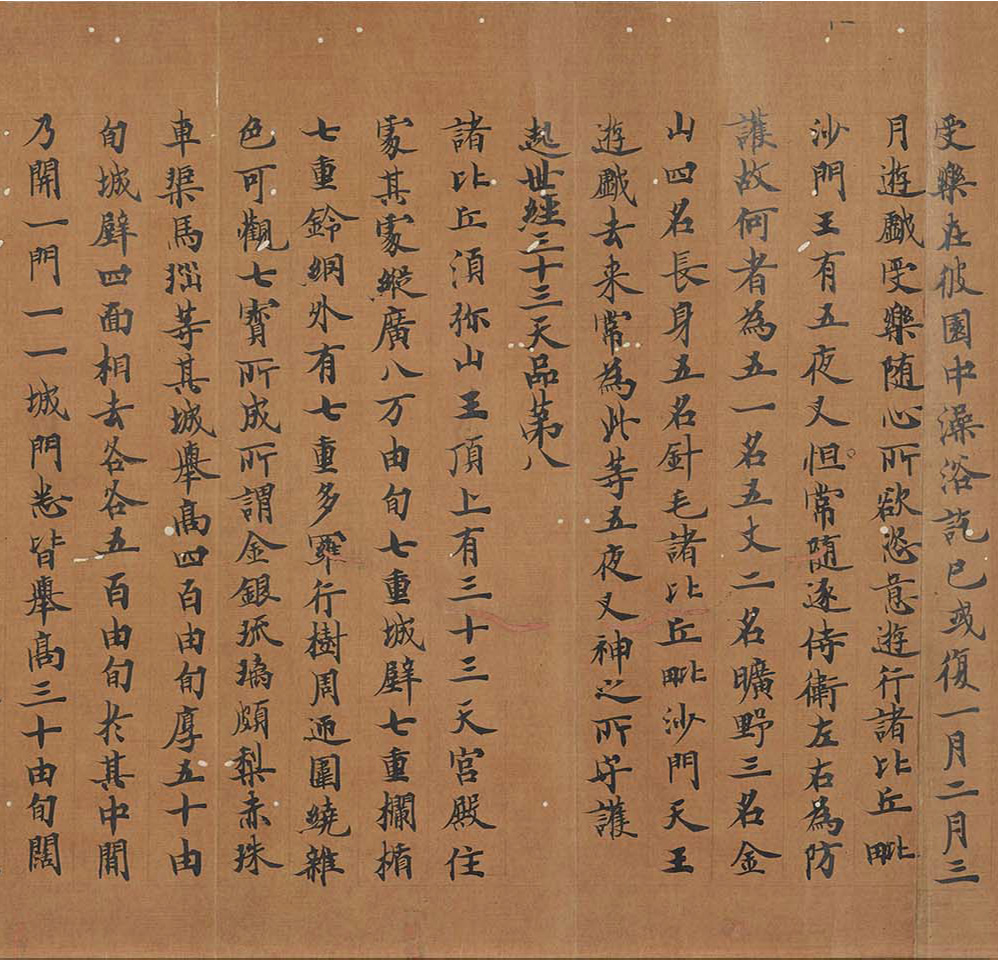 受樂在彼園中澡浴訖已或復一月二月三
月遊戲受樂随心所欲恣意遊行諸比丘毗
沙門王有五夜叉恒常随逐侍衛左右為防
護故何者為五一名五丈二名曠野三名金
山四名長身五名針毛諸比丘毗沙門天王
遊戲去来常為此等五夜叉神之所守護
起世經三十三天品第八
諸比丘湏弥山王頂上有三十三天宮殿住
處其處縱廣八万由旬七重城壁七重欄楯
七重鈴網外有七重多羅行樹周迊圍繞雜
色可觀七寶所成所謂金銀瑠璃頗梨赤珠
車渠馬瑙等其城舉高四百由旬厚五十由
旬城壁四面相去各各五百由旬於其中間
乃開一門一一城門悉皆舉高三十由旬闊